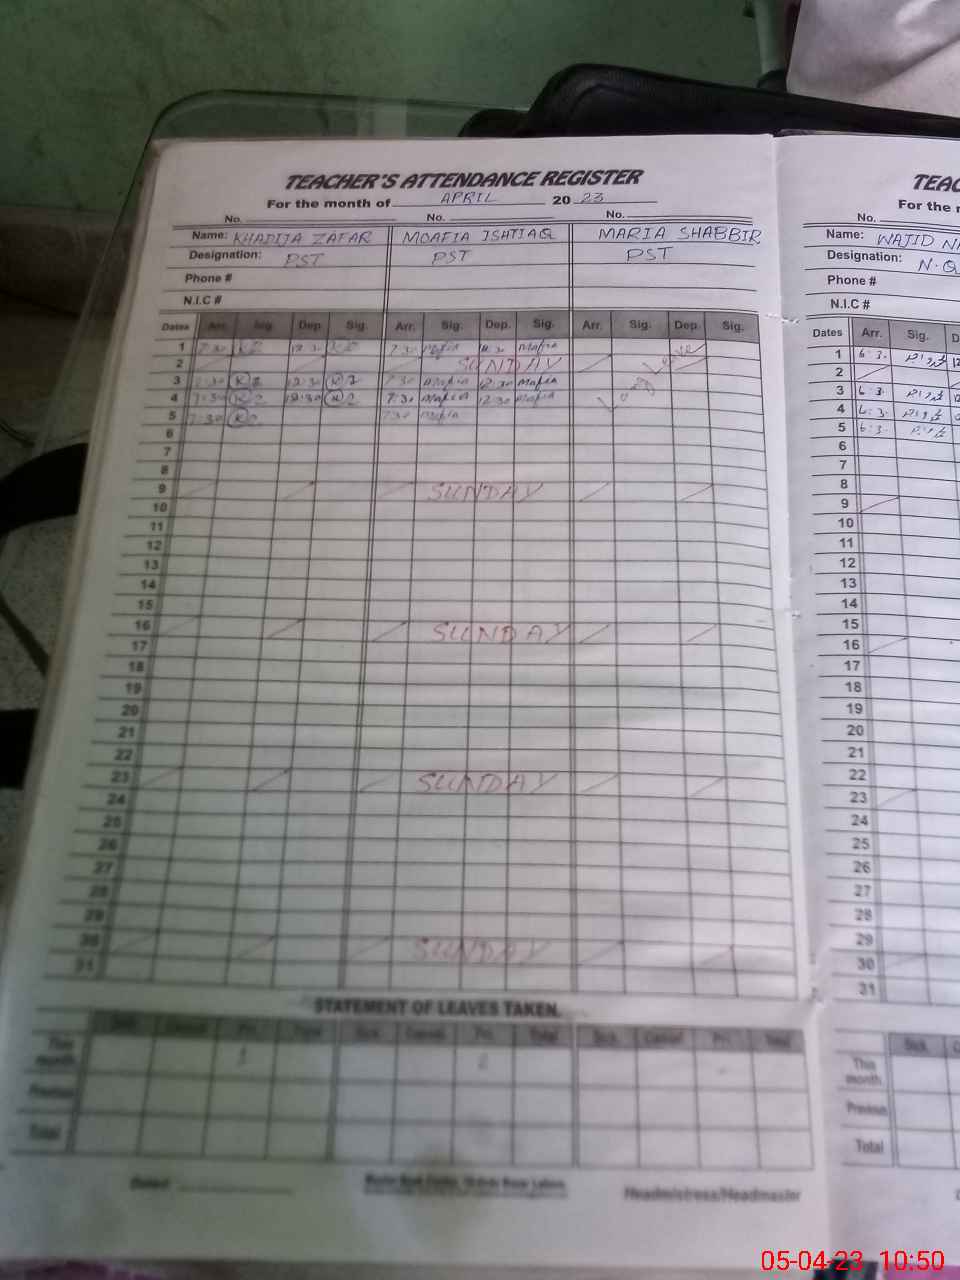 TEACHER'S ATTENDANCE REGISTER
For the month of APRIL 20 23
No. No. No.
Name: KHADIJA ZAFAR MOAFIA ISHTIAQ MARIA SHABBIR
Designation: PST PST PST
Phone #
N.I.C #
Dates Arr. Sig. Dep. Sig. Arr. Sig. Dep. Sig. Arr. Sig. Dep. Sig.
1 7:30 12:30 7:30 Mafia 12:30 Mafia Long Leave
2 SUNDAY
3 7:30 12:30 7:30 Mafia 12:30 Mafia
4 7:30 12:30 7:30 Mafia 12:30 Mafia
5 7:30 7:30 Mafia
6
7
8
9 SUNDAY
10
11
12
13
14
15
16 SUNDAY
17
18
19
20
21
22
23 SUNDAY
24
25
26
27
28
29
30 SUNDAY
31
STATEMENT OF LEAVES TAKEN.
Sick. Casual Pri. Total Sick. Casual Pri. Total Sick. Casual Pri. Total
This month
Previous
Total
Dated
Headmistress/Headmaster
TEAC
For the
No.
Name: WAJID
Designation: N.Q
Phone #
N.I.C #
Dates Arr. Sig.
1 6:3
2
3 6:3
4 6:3
5 6:3
6
7
8
9
10
11
12
13
14
15
16
17
18
19
20
21
22
23
24
25
26
27
28
29
30
31
Sick.
This month
Previous
Total
05-04-23 10:50